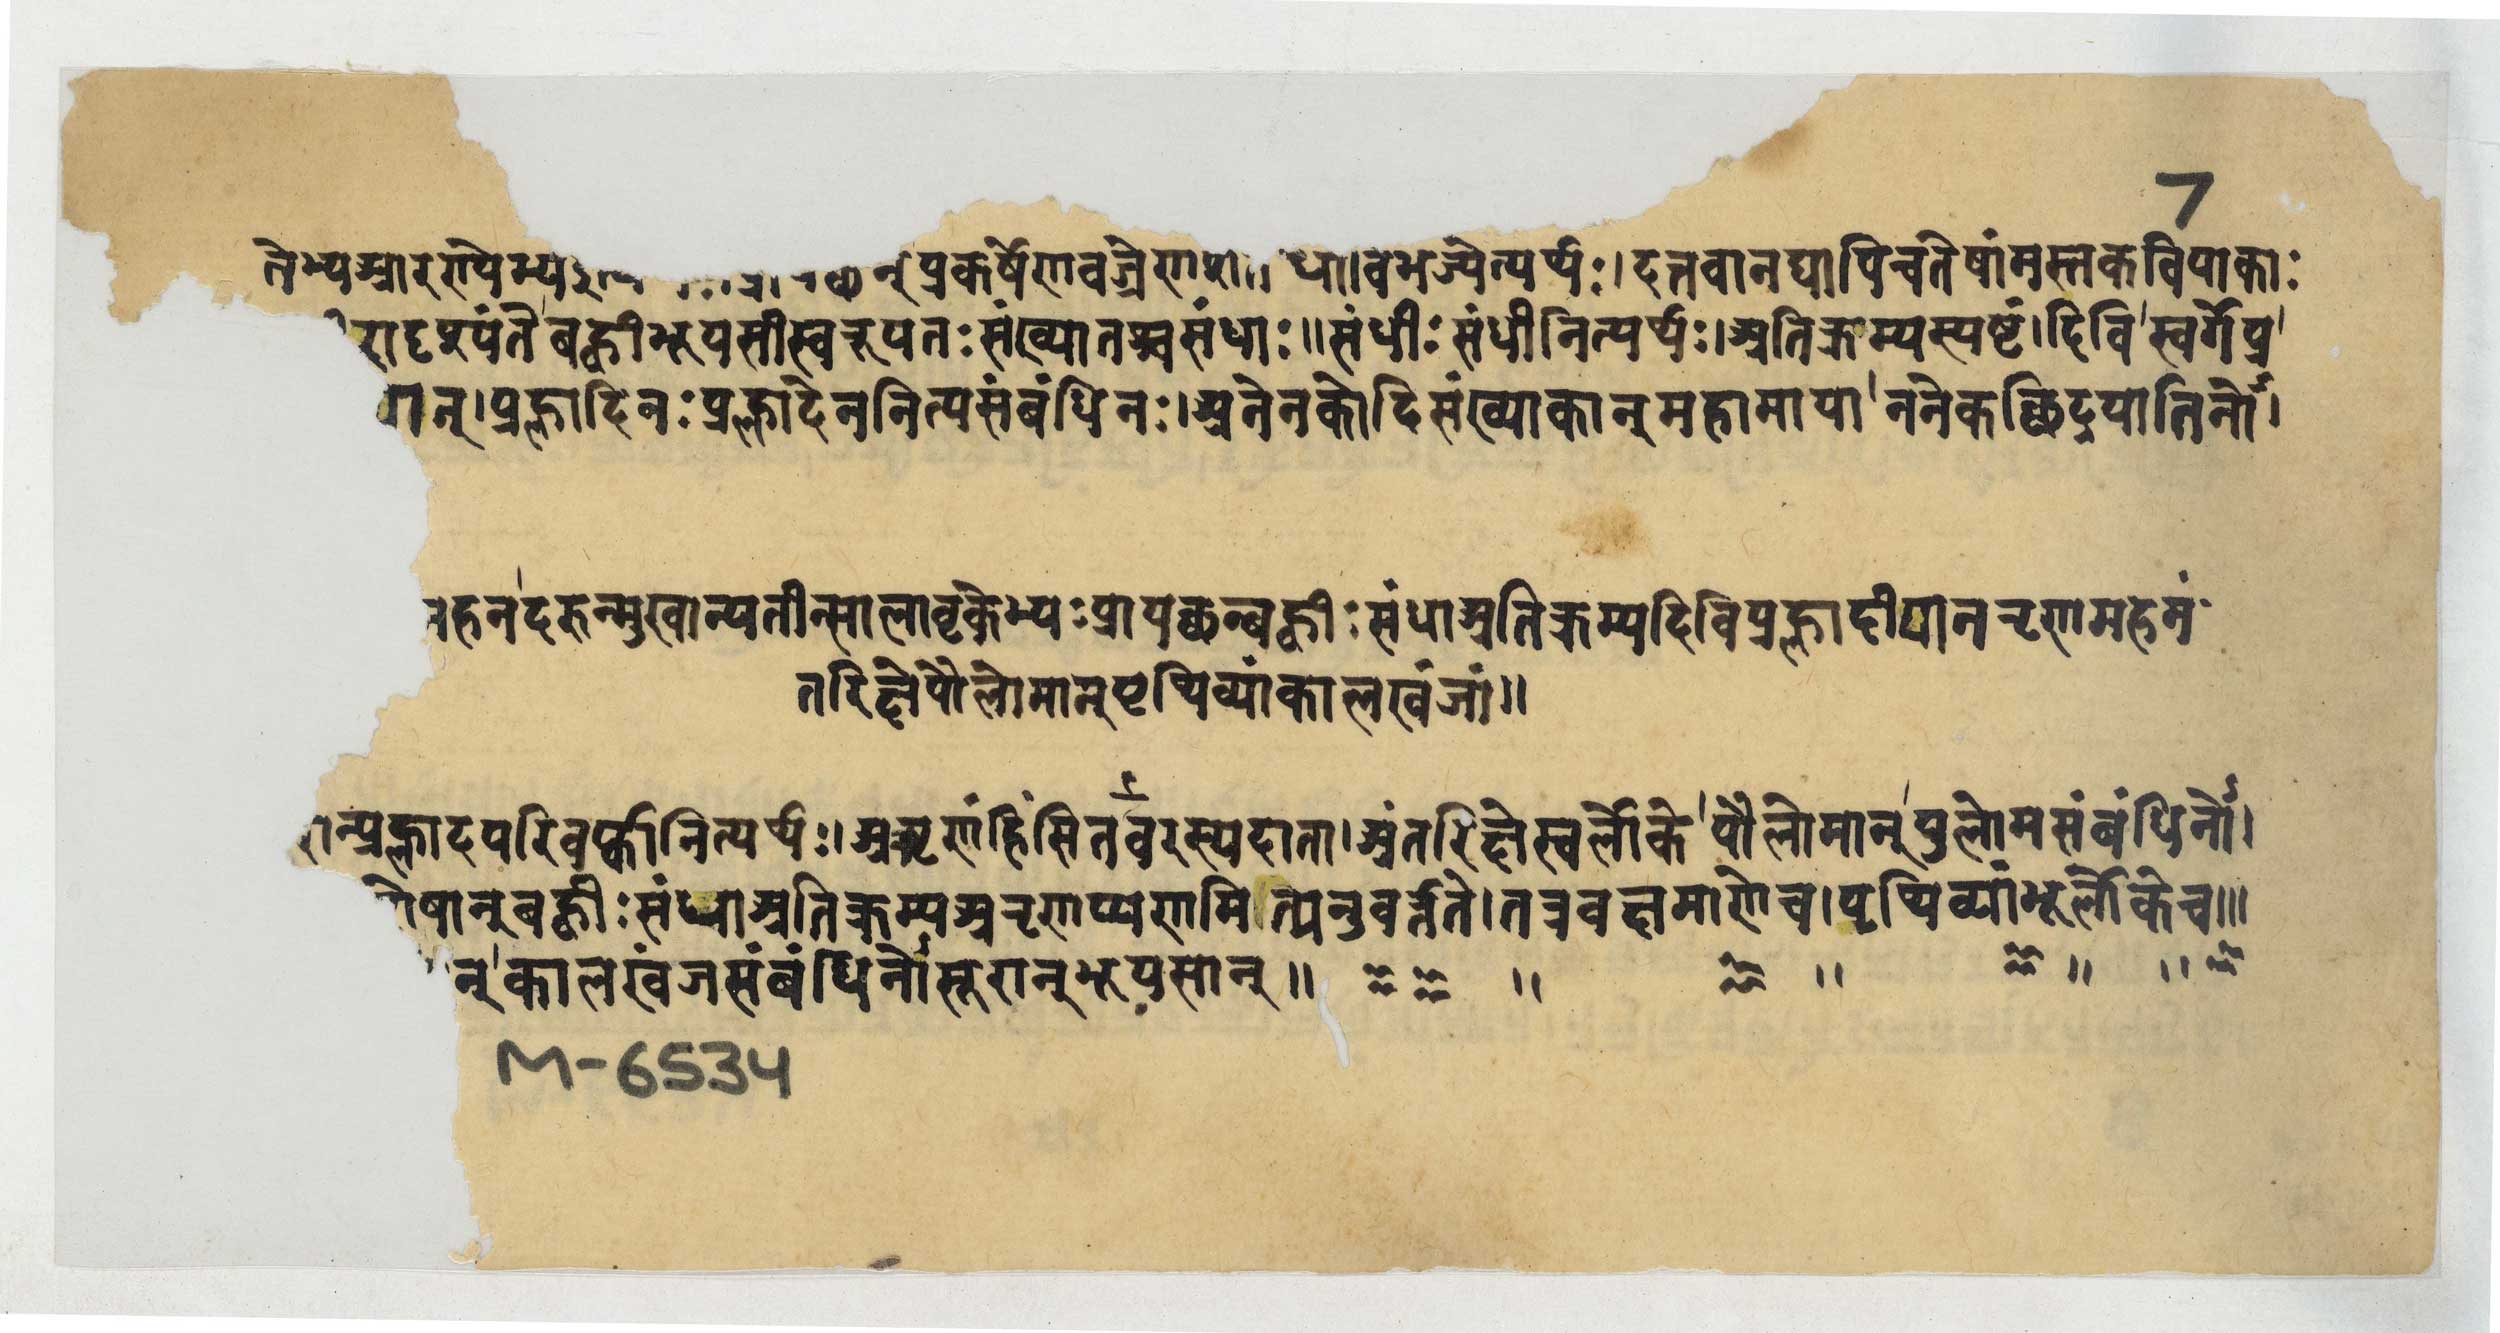 7
तेभ्यआरण्येभ्य प्रकर्षेणवज्रेण धाविभज्येत्यर्थः।दत्तवानद्यापिचतेषांमस्तकविपाकाः
रादृश्यंते'बह्वीभूयसीस्वरूपतःसंख्यातश्चसंधाः॥संधीःसंधीनित्यर्थः।अतिक्रम्यस्पष्टं।दिवि'स्वर्गेप्र'
न्।प्रह्लादिनःप्रह्लादेननित्यसंबंधिनः।अनेनकोदिसंख्याकान्महामाया'ननेकछिद्रपातिनो।
हनंदरुन्मुखान्यतीन्सालावृकेभ्यःप्रायछन्बह्वीःसंधाअतिक्रम्यदिविप्रह्लादीयानतृणमहमं
तरिक्षेपौलोमान्पृथिव्यांकालखंजां॥
न्प्रह्लादपरिवर्कानित्यर्थः।अतृणंहिंसित दाता।अंतरिक्षेस्वर्लोके'पौलोमान्'पुलोमसंबंधिनो।
षान्बह्वीःसंध्याअतिक्रम्यअतृण मित्यनुवर्त्तते।तत्रवक्ष्यमाणेच।पृथिव्यांभूर्लोकेच॥।
न्'कालखंजसंबंधिनो भूयसान्॥ ॥ ॥ ॥ ॥
M-6534